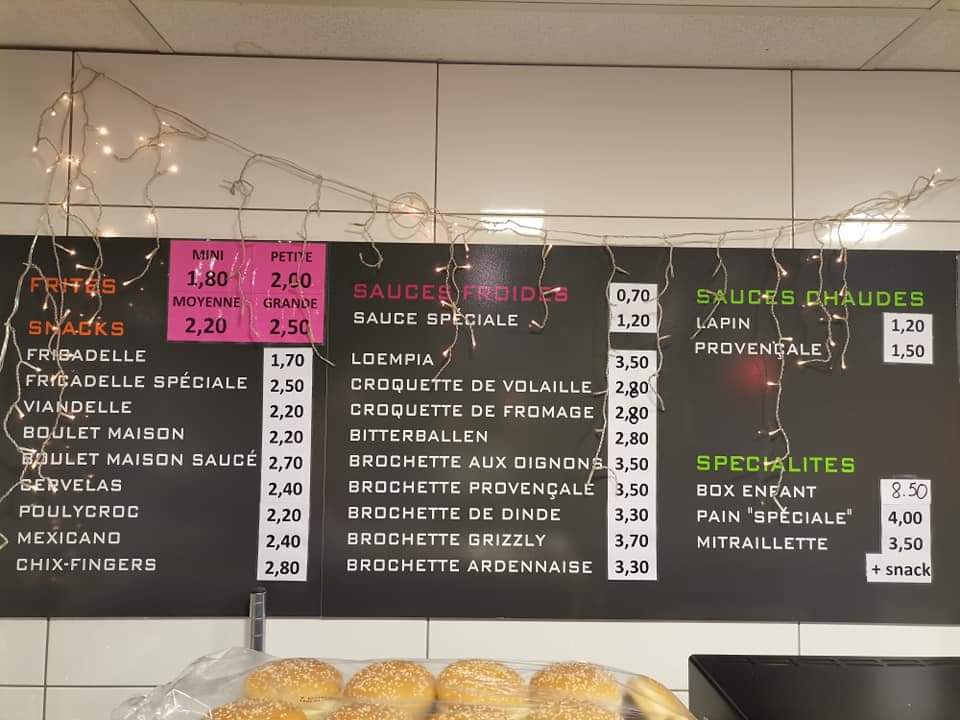 FRITES
MINI PETITE
1,80 2,00
MOYENNE GRANDE
2,20 2,50
SNACKS
FRICADELLE 1,70
FRICADELLE SPÉCIALE 2,50
VIANDELLE 2,20
BOULET MAISON 2,20
BOULET MAISON SAUCÉ 2,70
CERVELAS 2,40
POULYCROC 2,20
MEXICANO 2,40
CHIX-FINGERS 2,80
SAUCES FROIDES 0,70
SAUCE SPÉCIALE 1,20
LOEMPIA 3,50
CROQUETTE DE VOLAILLE 2,80
CROQUETTE DE FROMAGE 2,80
BITTERBALLEN 2,80
BROCHETTE AUX OIGNONS 3,50
BROCHETTE PROVENÇALE 3,50
BROCHETTE DE DINDE 3,30
BROCHETTE GRIZZLY 3,70
BROCHETTE ARDENNAISE 3,30
SAUCES CHAUDES
LAPIN 1,20
PROVENÇALE 1,50
SPECIALITES
BOX ENFANT 8.50
PAIN "SPÉCIALE" 4,00
MITRAILLETTE 3,50
+ snack